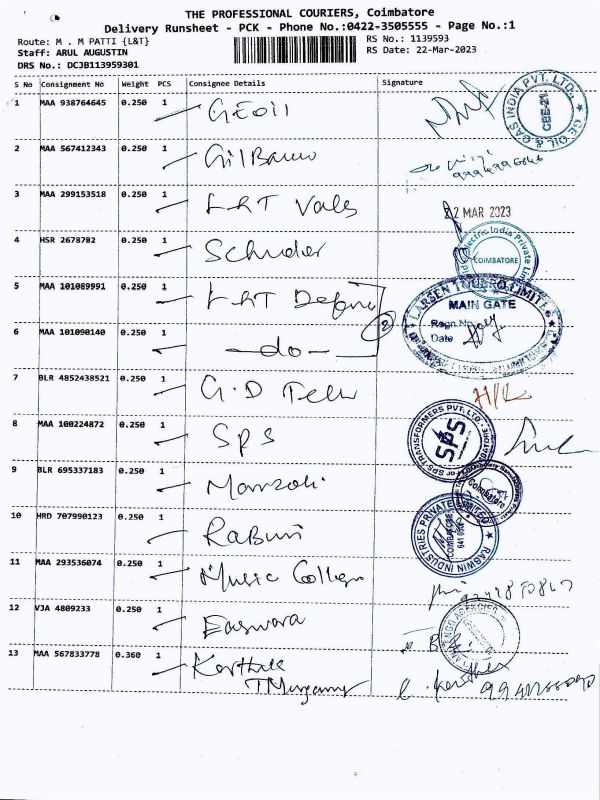 THE PROFESSIONAL COURIERS, Coimbatore
Delivery Runsheet - PCK - Phone No.:0422-3505555 - Page No.:1
Route: M . M PATTI {L&T} RS No.: 1139593
Staff: ARUL AUGUSTIN RS Date: 22-Mar-2023
DRS No.: DCJB113959301
S No Consignment No Weight PCS Consignee Details Signature
1 MAA 938764645 0.250 1 GEOil
GE OIL & GAS INDIA PVT. LTD.,
CBE-21.
2 MAA 567412343 0.250 1
3 MAA 299153518 0.250 1 L&T Valves
22 MAR 2023
4 HSR 2678782 0.250 1 Schnider
Electric India Private Lim
COIMBATORE
5 MAA 101089991 0.250 1 L&T Defence
LARSEN TOUBRO LIMITED
MAIN GATE
Regn.No
Date
6 MAA 101090140 0.250 1 -do- 2
7 BLR 4852438521 0.250 1 G.D Tech
8 MAA 100224872 0.250 1 SPS
SPS TRANSFORMERS PVT. LTD.
SPS
COIMBATORE
9 BLR 695337183 0.250 1
Coimbatore
10 HRD 707990123 0.250 1 RABWIN
RABWIN INDUSTRIES PRIVATE LIMITED
COIMBATORE
11 MAA 293536074 0.250 1 Music College
12 VJA 4809233 0.250 1 Easwara
13 MAA 567833778 0.360 1 Karthik